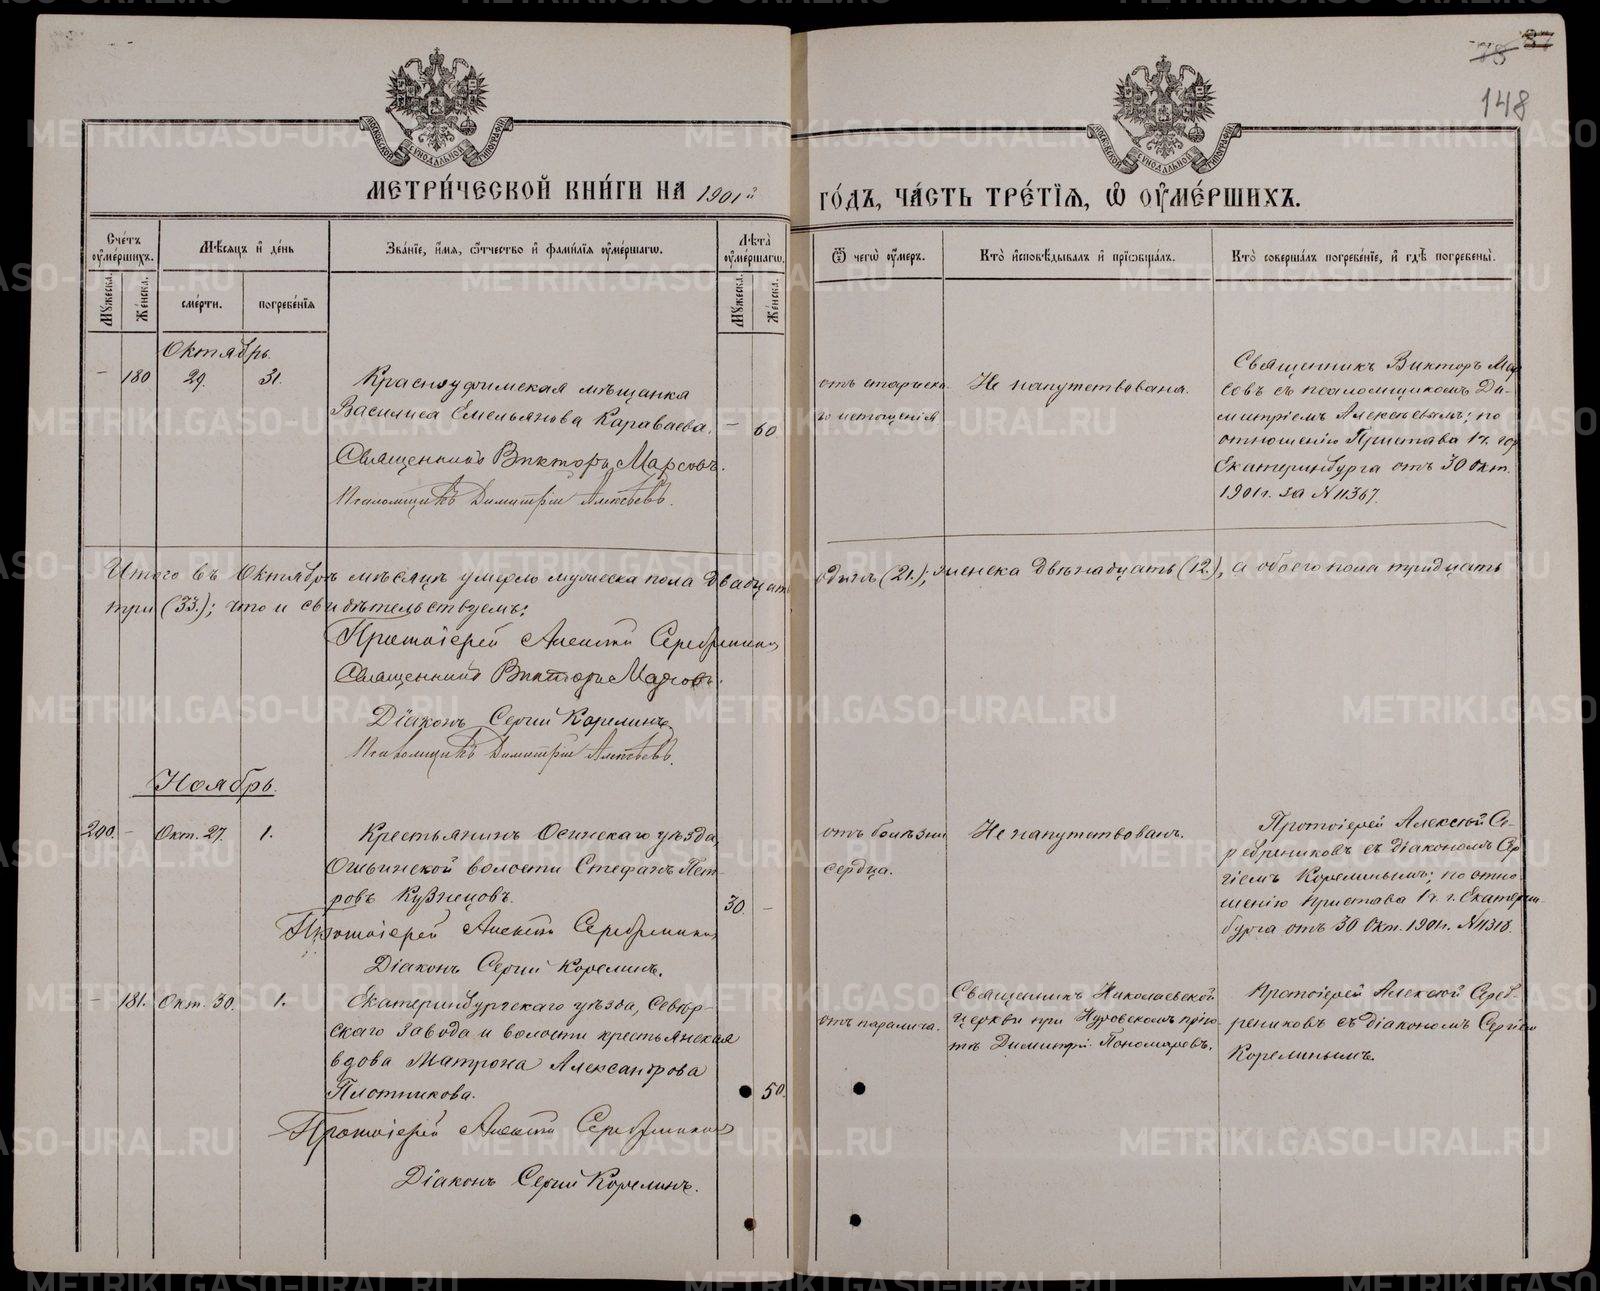 78 37
148
МОСКОВСКОЙ СѴНОДАЛЬНОЙ ТИПОГРАФІИ
МОСКОВСКОЙ СѴНОДАЛЬНОЙ ТИПОГРАФІИ
МЕТРИ́ЧЕСКОЙ КНИ́ГИ НА 1901й ГО́ДЪ, ЧА́СТЬ ТРЕ́ТІѦ, Ѡ҆ ОУ҆МЕ́РШИХЪ.
Сче́тъ оу҆ме́ршихъ.
Мꙋжеска.
Же́нска.
Мѣ́сяцъ и҆ де́нь
сме́рти.
погребе́нїѧ
Зва́нїе, и҆́мѧ, ѻ҆́тчество и҆ фами́лїѧ оу҆ме́ршагѡ.
Лѣ́та оу҆ме́ршагѡ.
Мꙋжеска.
Же́нска.
Ѿ чегѡ̀ оу҆́меръ.
Кто̀ и҆сповѣ́дывалъ и҆ прїѡбща́лъ.
Кто̀ соверша́лъ погребе́нїе, и҆ гдѣ̀ погребены̀.
Октябрь.
– 180 29. 31.
Красноуфимская мѣщанка
Василиса Емельянова Караваева. – 60
Священникъ Викторъ Марсовъ.
Псаломщикъ Димитрій Алексѣевъ.
отъ старческа-
го истощенія
Не напутствована.
Священникъ Викторъ Мар
совъ съ псаломщикомъ Ди-
митріемъ Алексѣевымъ; по
отношенію Пристава 1 ч. гор
Екатеринбурга отъ 30 Окт.
1901 г. за N 11367.
Итого въ Октябрѣ мѣсяцѣ умерло мужеска пола двадцать одинъ (21.), женска двѣнадцать (12.), а обоего пола тридцать
три (33.); что и свидѣтельствуемъ:
Протоіерей Алексій Серебрениковъ
Священникъ Викторъ Марсовъ.
Діаконъ Сергій Корелинъ
Псаломщикъ Димитрій Алексѣевъ.
Ноябрь.
200. – Окт. 27. 1.
Крестьянинъ Осинскаго уѣзда,
волости Стефанъ Пет-
ровъ Кузнецовъ. 30. –
Протоіерей Алексій Серебрениковъ
Діаконъ Сергій Корелинъ.
отъ болѣзни
сердца.
Не напутствованъ.
Протоіерей Алексій Се-
ребрениковъ съ діакономъ Сер
гіемъ Корелинымъ; по отно-
шенію пристава 1 ч. г. Екатерин-
бурга отъ 30 Окт. 1901 г. N 11318.
– 181. Окт. 30. 1.
Екатеринбургскаго уѣзда, Сысерт-
скаго завода и волости крестьянская
вдова Матрона Александрова
Плотникова. 50.
Протоіерей Алексій Серебрениковъ
Діаконъ Сергій Корелинъ.
отъ паралича.
Священникъ Николаевской
церкви при Нуровскомъ прію-
тѣ Димитрій Пономаревъ.
Протоіерей Алексій Сереб-
рениковъ съ діакономъ Сергіемъ
Корелинымъ.
METRIKI.GASO-URAL.RU